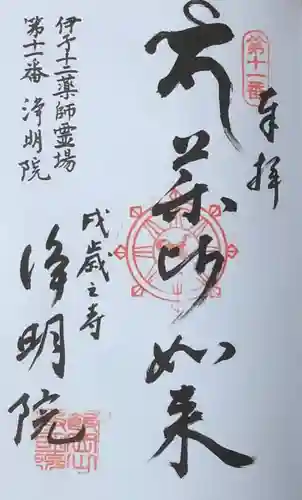 奉拝
第十一番
薬師如来
戌歳之寺
浄明院
伊予十二薬師霊場
第十一番 浄明院